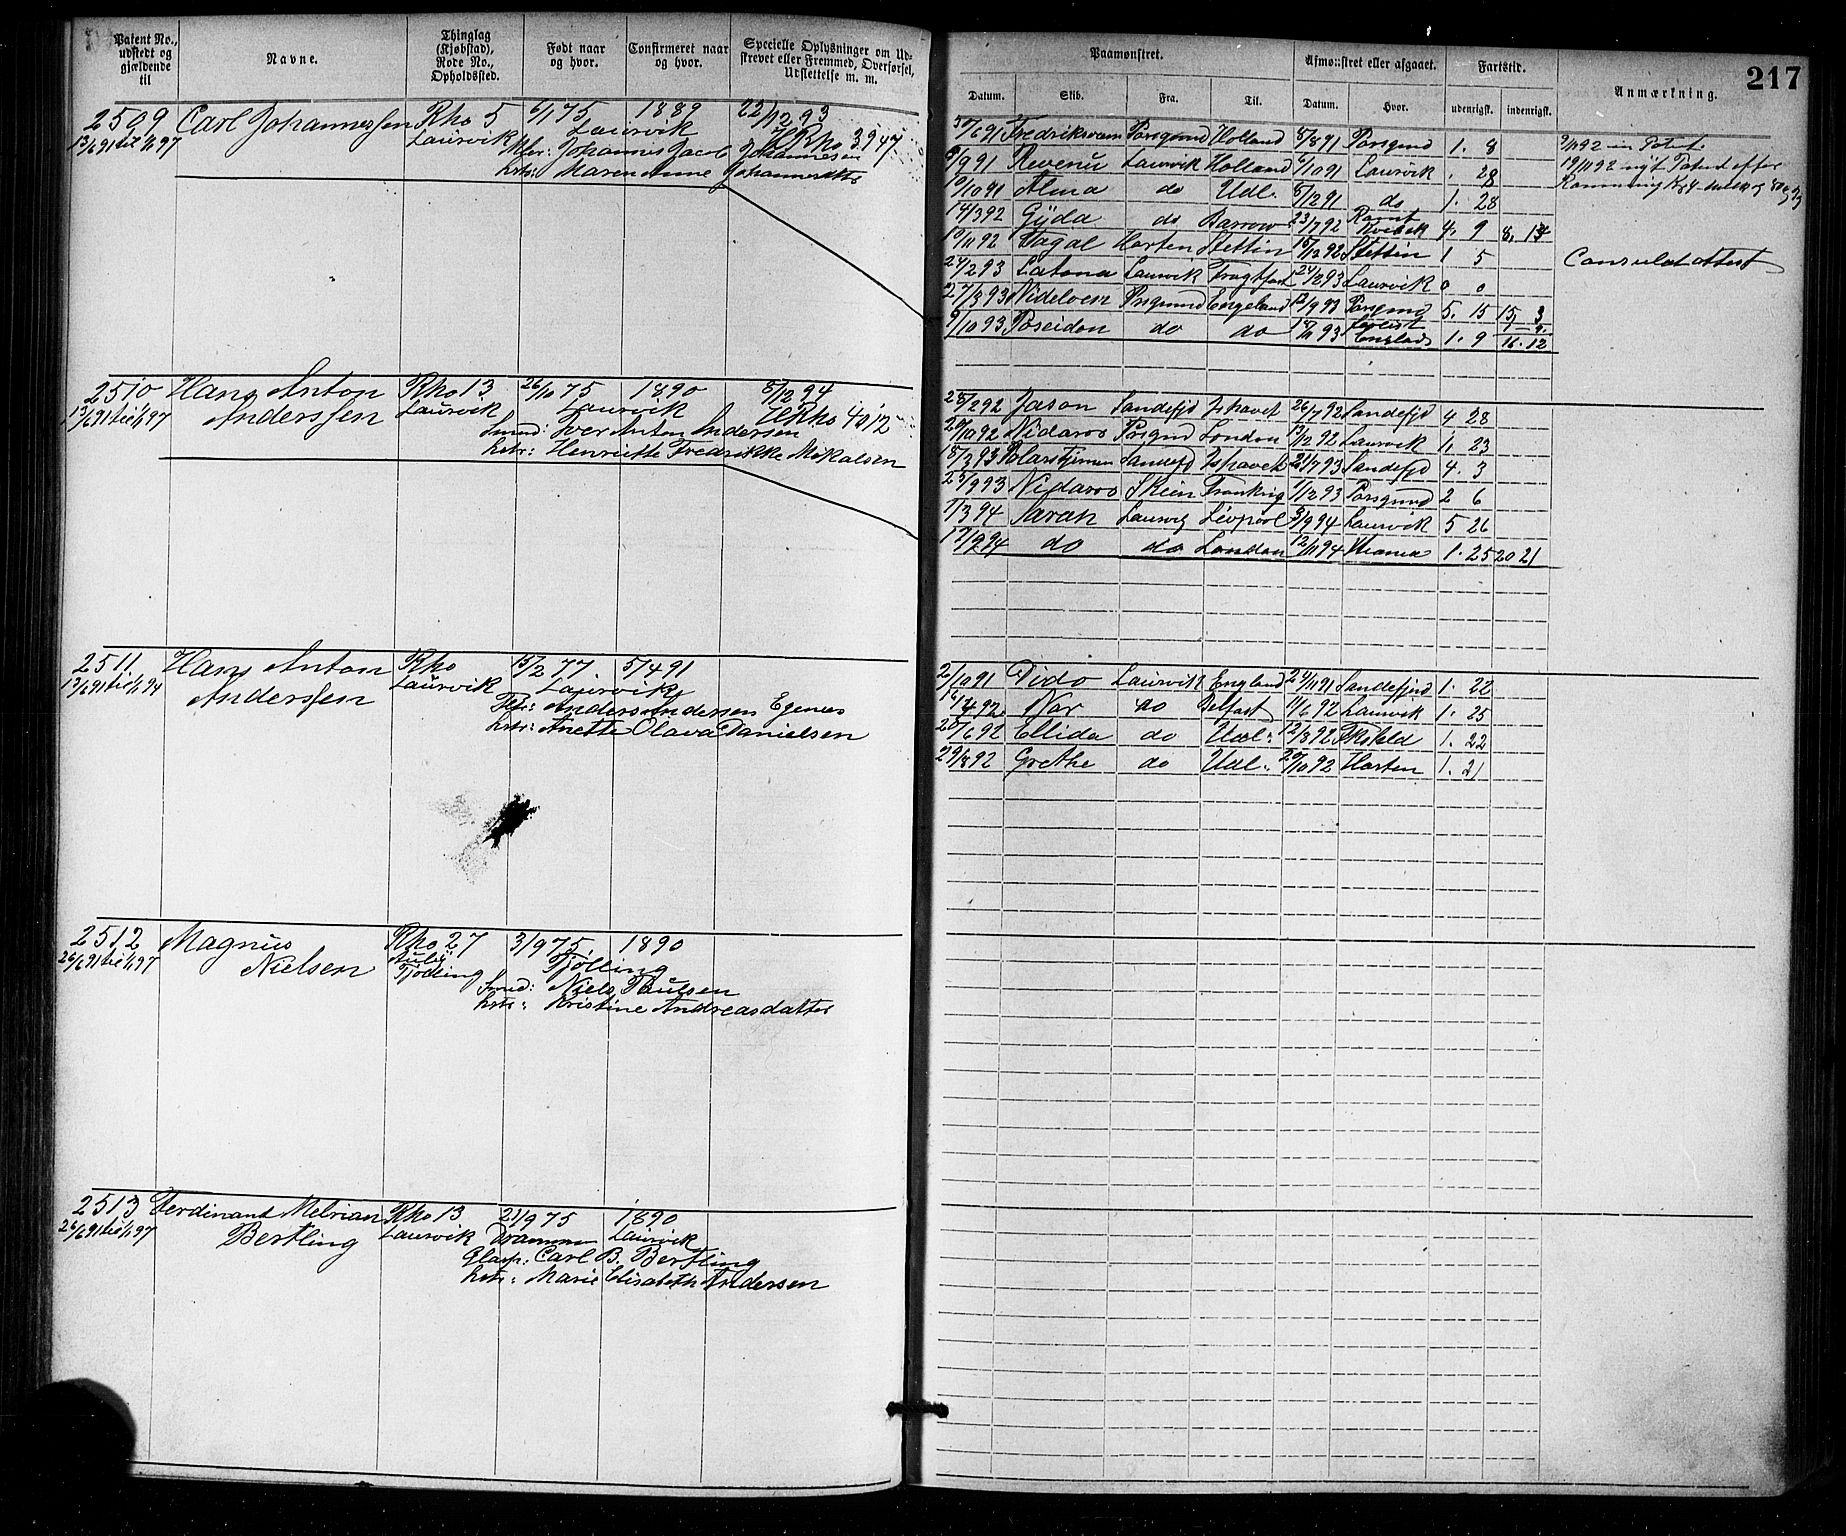 Patent No., udstedt og gjældende til
Navne.
Thinglag (Kjøbstad), Rode No., Opholdssted.
Født naar og hvor.
Confirmeret naar og hvor.
Specielle Oplysninger om Udstrevet eller Fremmed, Overførsel, Udslettelse m. m.
2509 Carl Johannessen Rho 5 6/1 75 1889 22/12 93
13/6 91 til 1/1 97 Laurvik Laurvik HRho 3947
Johannis Jacob Johannesen
hstr: Maren Anne Johannesdtr
2510 Hans Anton Rho 13 26/10 75 1890 5/12 94
13/6 91 til 1/1 97 Anderssen Laurvik Laurvik HRho 4012
Smed: Iver Anton Andersen
hstr: Henriette Fredrikke Mikalsen
2511 Hans Anton Rho 15/2 77. 5/4 91
13/6 91 til 1/1 94 Anderssen Laurvik Laurvik
Anders Andersen Egenes
hstr: Anette Olava Danielsen
2512 Magnus Rho 27 3/9 75 1890
26/6 91 til 1/1 97 Nielsen Tjølling Tjølling
Smed: Niels Paulsen
hstr: Kristine Andreasdatter
2513 Ferdinant Melvian Rho 13 21/9 75 1890
26/6 91 til 1/1 97 Bertling Laurvik Drammen Laurvik
Glasp: Carl B. Bertling
hstr: Marie Elisabeth Andersen
217
Paamønstret.
Afmønstret eller afgaaet.
Fartstid.
Anmærkning.
Datum. Skib. Fra. Til. Datum. Hvor. udenrigsk. indenrigsk.
30/6 91 Fredriksværn Porsgrund Holland 8/8 91 Porsgrund 1. 8
9/9 91 Revenu Laurvik Holland 6/10 91 Laurvik . 28
10/10 91 Alma do Udl. 8/12 91 do 1. 28
14/3 92 Gyda do Barrow 23/7 92 4. 9
10/11 92 Vagal Horten Stettin 15/12 92 Stettin 1 5 Consulatattest
24/2 93 Latona Laurvik Fragtfart 24/2 93 Laurvik 0 0
27/3 93 Nidelven Prsgrund Engeland 12/9 93 Porsgrund 5. 15 15, 3
9/10 93 Poseidon do do 18/11 93 England 1. 9 16. 12
9/11 92 Patent.
19/11 92 nyt Patent efter
25/2 92 Jason Sandefjd Ishavet 26/7 92 Sandefjd 4 28
20/10 92 Nidaros Prsgrnd London 13/12 92 Laurvik 1. 23
18/3 93 Polarstjernen Sandefjd Ishavet 21/7 93 Sandefjd 4. 3
25/9 93 Nidaros Skien Frankrig 1/12 93 Porsgrund 2 6
1/3 94 Sarah Laurvig Livpool 9/9 94 Laurvik 5 26
17/9 94 do do London 12/11 94 Khania 1. 25 20 21
2/10 91 Dido Laurvik England 24/11 91 Sandefjord 1. 22
16/4 92 Nor do Belfast 11/6 92 Laurvik 1. 25
20/6 92 Ellida do Udl. 12/8 92 1. 22
29/8 92 Grethe do Udl. 20/10 92 Horten 1. 21